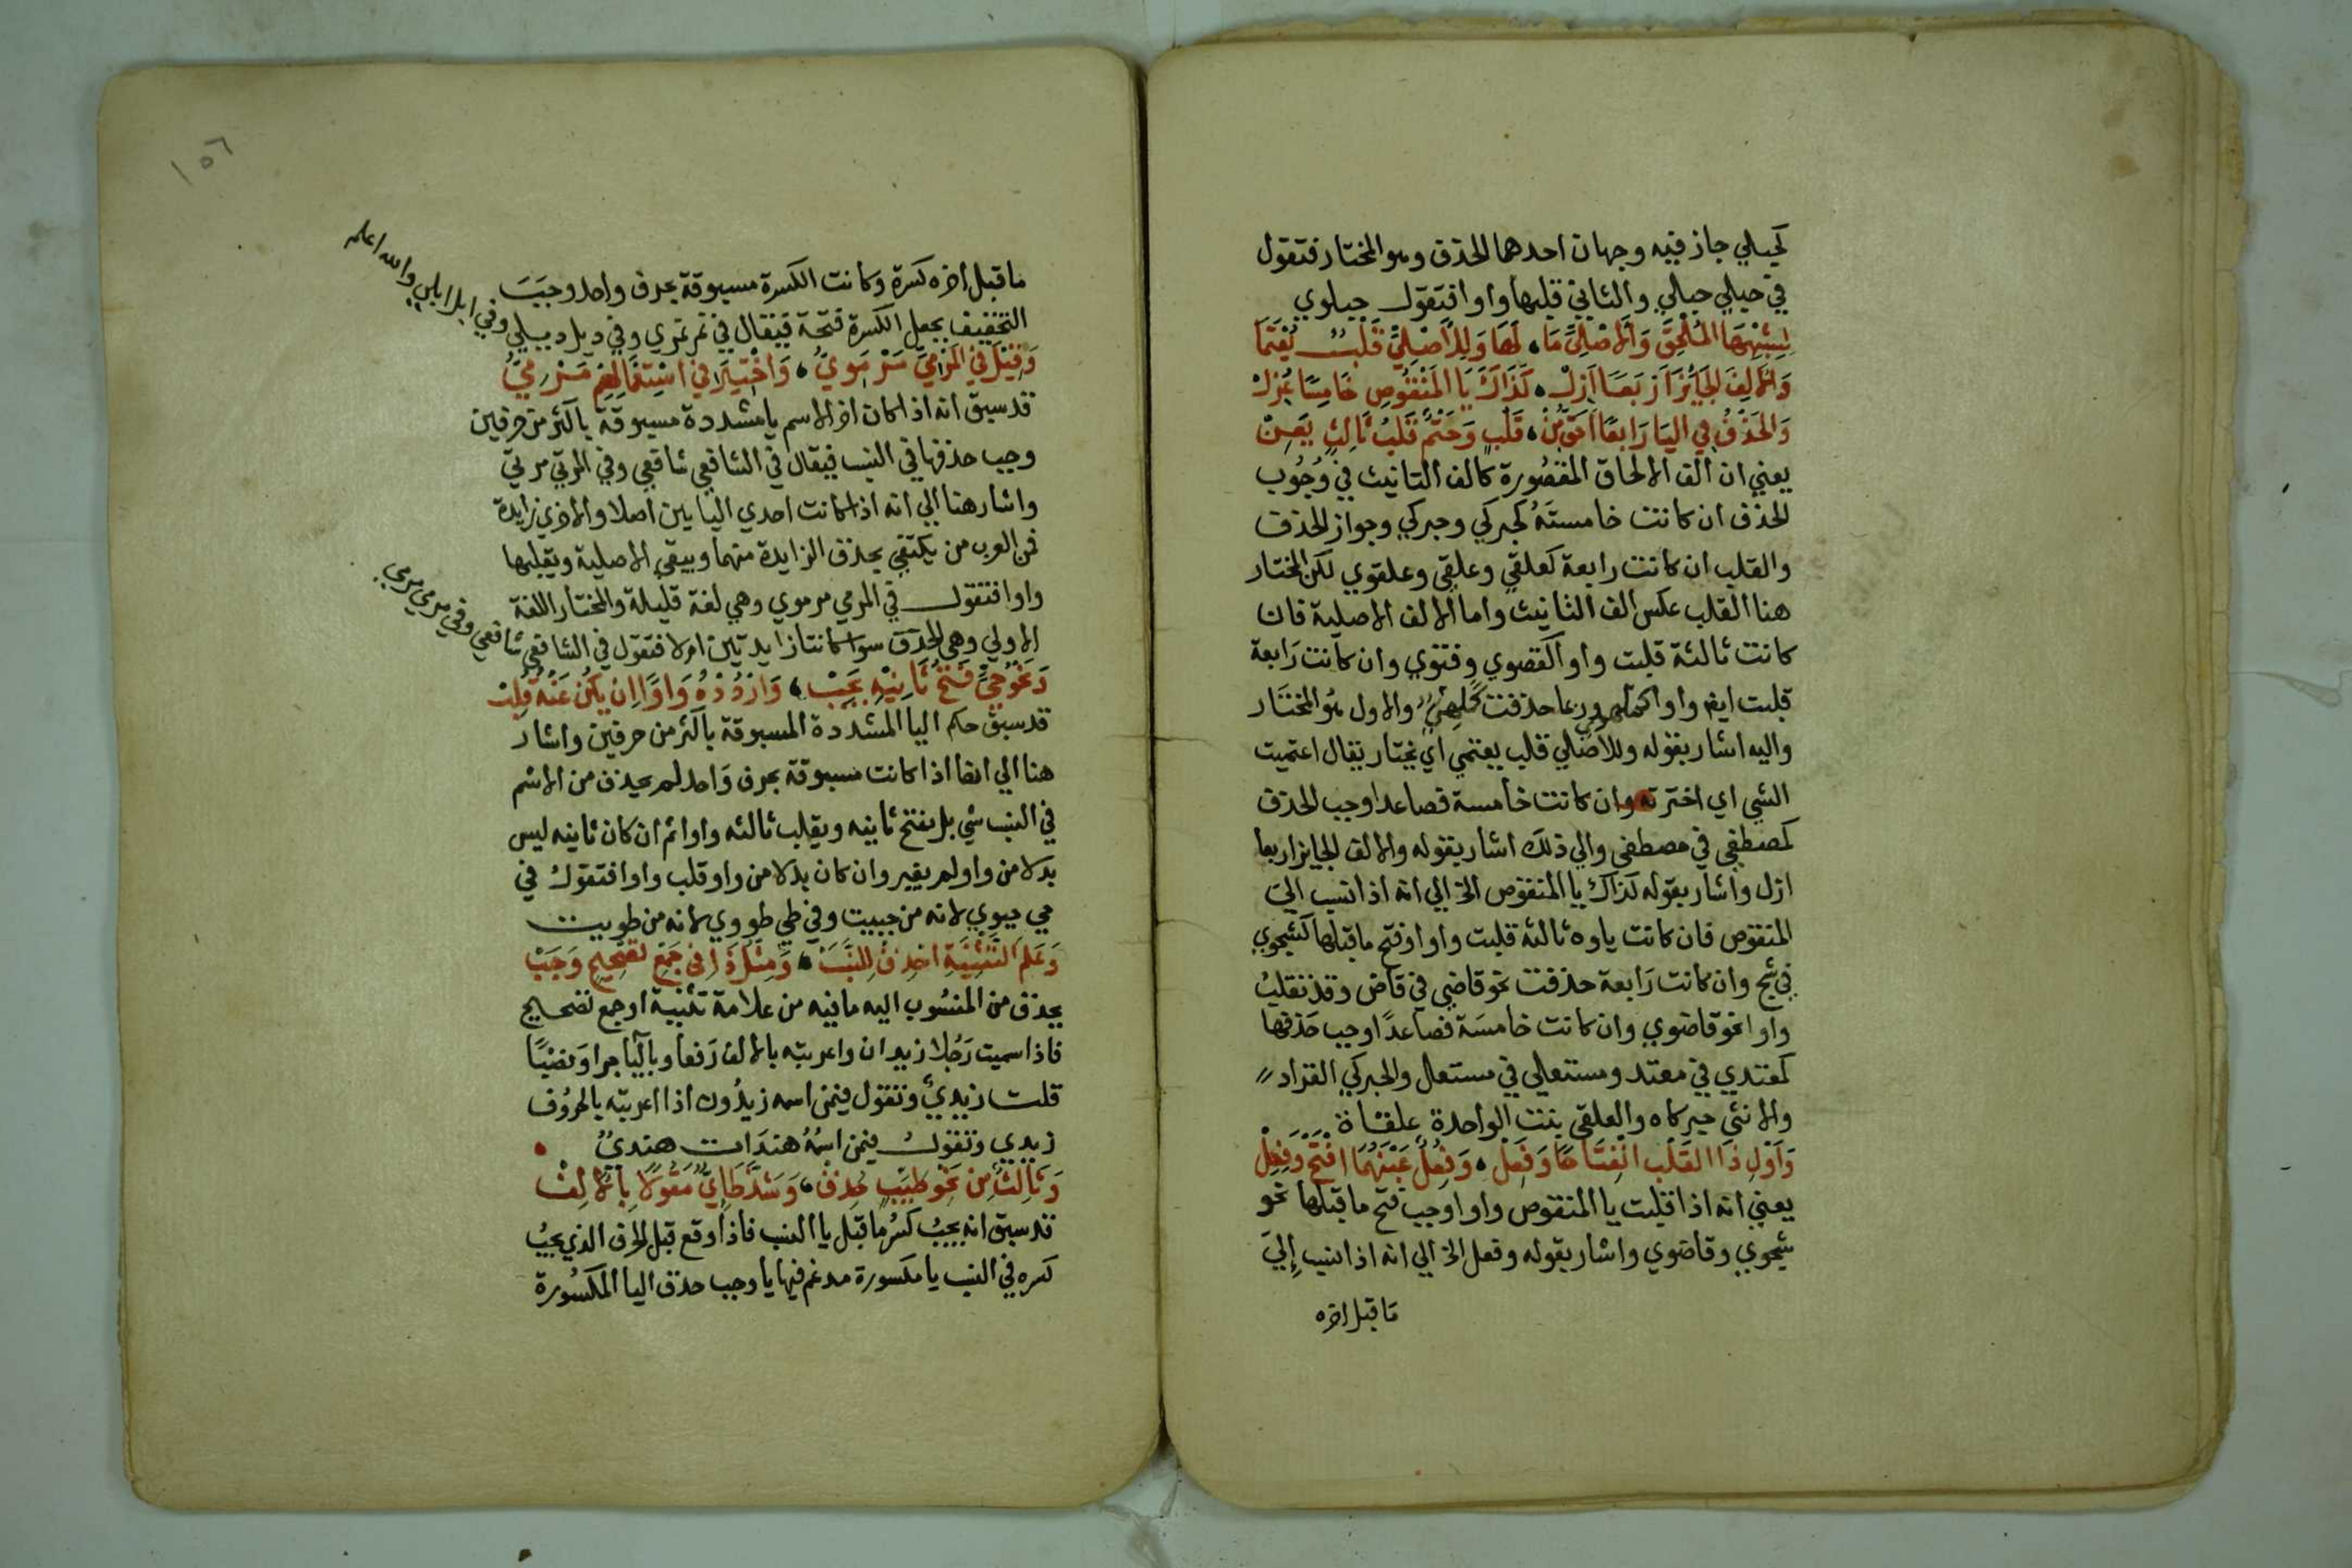 كحبلي جاز فيه وجهان احدهما الحذف وهو المختار فتقول
في حبلي حبلي والثاني قلبها واوا فتقول حبلوي
لِشِبْهِهَا المُلْحَقِ وَالأَصْلِيِّ مَا، لَهَا وَلِلأَصْلِيِّ قَلْبٌ يُعْتَمَا
وَالأَلِفَ الجَايِزَ أَرْبَعًا أَزِلْ، كَذَاكَ يَا المَنْقُوصِ خَامِسًا عُزِلْ
وَالحَذْفُ فِي اليَا رَابِعًا أَحَقُّ مِنْ، قَلْبٍ وَحَتْمٌ قَلْبُ ثَالِثٍ يَعِنْ
يعني ان الف الالحاق المقصُورة كالف التانيث في وُجُوب
الحذف ان كانت خامستَهُ كحبركي وحبركي وجواز الحذف
والقلب ان كانت رابعة كعلقي وعلقي وعلقوي لكن المختار
هنا القلب عكس الف التانيث واما الالف الاصلية فان
كانت ثالثة قلبت واوا كقصوي وفتوي وان كانت رَابعة
قلبت ايضا واوا كملهوي وربما حذفت كملهيٌّ والاول هُو المختَار
واليه اشار بقوله وللأصلي قلب يعتمي اي يختار يقال اعتميت
الشي اي اخترته وان كانت خامسة فصاعدا وجب الحذف
كمصطفي في مصطفي والي ذلك اشار بقوله والالف الجايز اربعا
ازل واشار بقوله كذاك يا المنقوص الخ الي انه اذا نسب الي
المنقوص فان كانت ياوه ثالثة قلبت واوا وفتح ما قبلها كشجوي
في شج وان كانت رَابعة حذفت نحو قاضي في قاض وقد تقلبُ
واوا نحو قاضوي وان كانت خامسَة فصَاعدًا وجب حَذفها
كمعتدي في معتد ومستعلي في مستعل والحبركي القراد
والانثي حبركاه والعلقي نبت الواحدة علقاة
وَأَوْلِ ذَا القَلْبِ انْفِتَاحًا وَفَعِلْ، وَفُعِلٌ عَيْنَهُمَا افْتَحْ وَفِعِلْ
يعني انه اذا قلبت يا المنقوص واوا وجب فتح ما قبلها نحو
شجوي وقاضوي واشار بقوله وفعل الخ الي انه اذا نسب إليَ
مَا قبل اخره
ما قبل اخره كسرة وكانت الكسرة مسبوقة بحرف واحد وجبَ
التخفيف بجعل الكسرة فتحة فيقال في نمر نمري وفي دئل دئلي وفي ابل ابلي والله اعلم
وَقِيلَ فِي المَرْمِيِّ مَرْمَوِيُّ، وَاخْتِيرَ فِي اسْتِعْمَالِهِمْ مَرْمِيُّ
قد سبق انه اذا كان اخر الاسم يا مشددة مسبوقة باكثر من حرفين
وجب حذفها في النسب فيقال في الشافعي شافعي وفي المرمي مرمي
واشار هنا الي انه اذا كانت احدي اليايين اصلا والاخري زايدة
فمن العرب من يكتفي بحذف الزايدة منهما ويبقي الاصلية ويقلبها
واوا فتقول في المرمي مرموي وهي لغة قليلة والمختار اللغة
الاولي وهي الحذف سوا كانتا زايدتين ام لا فتقول في الشافعي شافعي وفي مرمي مرمي
وَنَحْوُ حَيٍّ فَتْحُ ثَانِيهِ يَجِبْ، وَارْدُدْهُ وَاوًا اِنْ يَكُنْ عَنْهُ قُلِبْ
قد سبق حكم اليا المشددة المسبوقة باكثر من حرفين واشار
هنا الي انها اذا كانت مسبوقة بحرف وَاحد لم يحذف من الاسم
في النسب شي بل يفتح ثانيه ويقلب ثالثه واوا ثم ان كان ثانيه ليس
بدلا من واو لم يغير وان كان بدلا من واو قلب واوا فتقول في
حي حيوي لانه من حييت وفي طي طووي لانه من طويت
وَعَلَمَ التَّثْنِيَةِ احْذِفْ لِلنَّسَبْ، وَمِثْلُ ذَا فِي جَمْعِ تَصْحِيحٍ وَجَبْ
يحذف من المنسُوب اليه ما فيه من علامة تثنية او جمع تصحيح
فاذا سميت رَجُلا زيدان واعربته بالالف رَفعا وباليا جرا وَنصْبًا
قلت زيديٌّ وتقول فيمن اسمه زيدُون اذا اعربته بالحرُوف
زيدي وتقولُ فيمن اسمُهُ هندَات هنديٌّ
وَثَالِثٌ مِنْ نَحْوِ طَيِّبٍ حُذِفْ، وَشَذَّ طَائِيٌّ مَقُولًا بِالأَلِفْ
قد سبق انه يجبُ كسرُ ما قبل يا النسب فاذا وقع قبل الحرف الذي يجبُ
كسره في النسب يا مكسورة مدغم فيها يا وجب حذف اليا المكسُورة
١٥٦